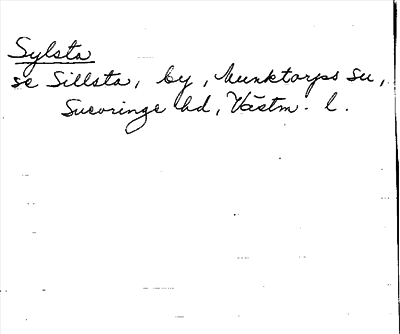 Sylsta
se Sillsta, by, Munktorps sn,
Snevringe hd, Västm. l.